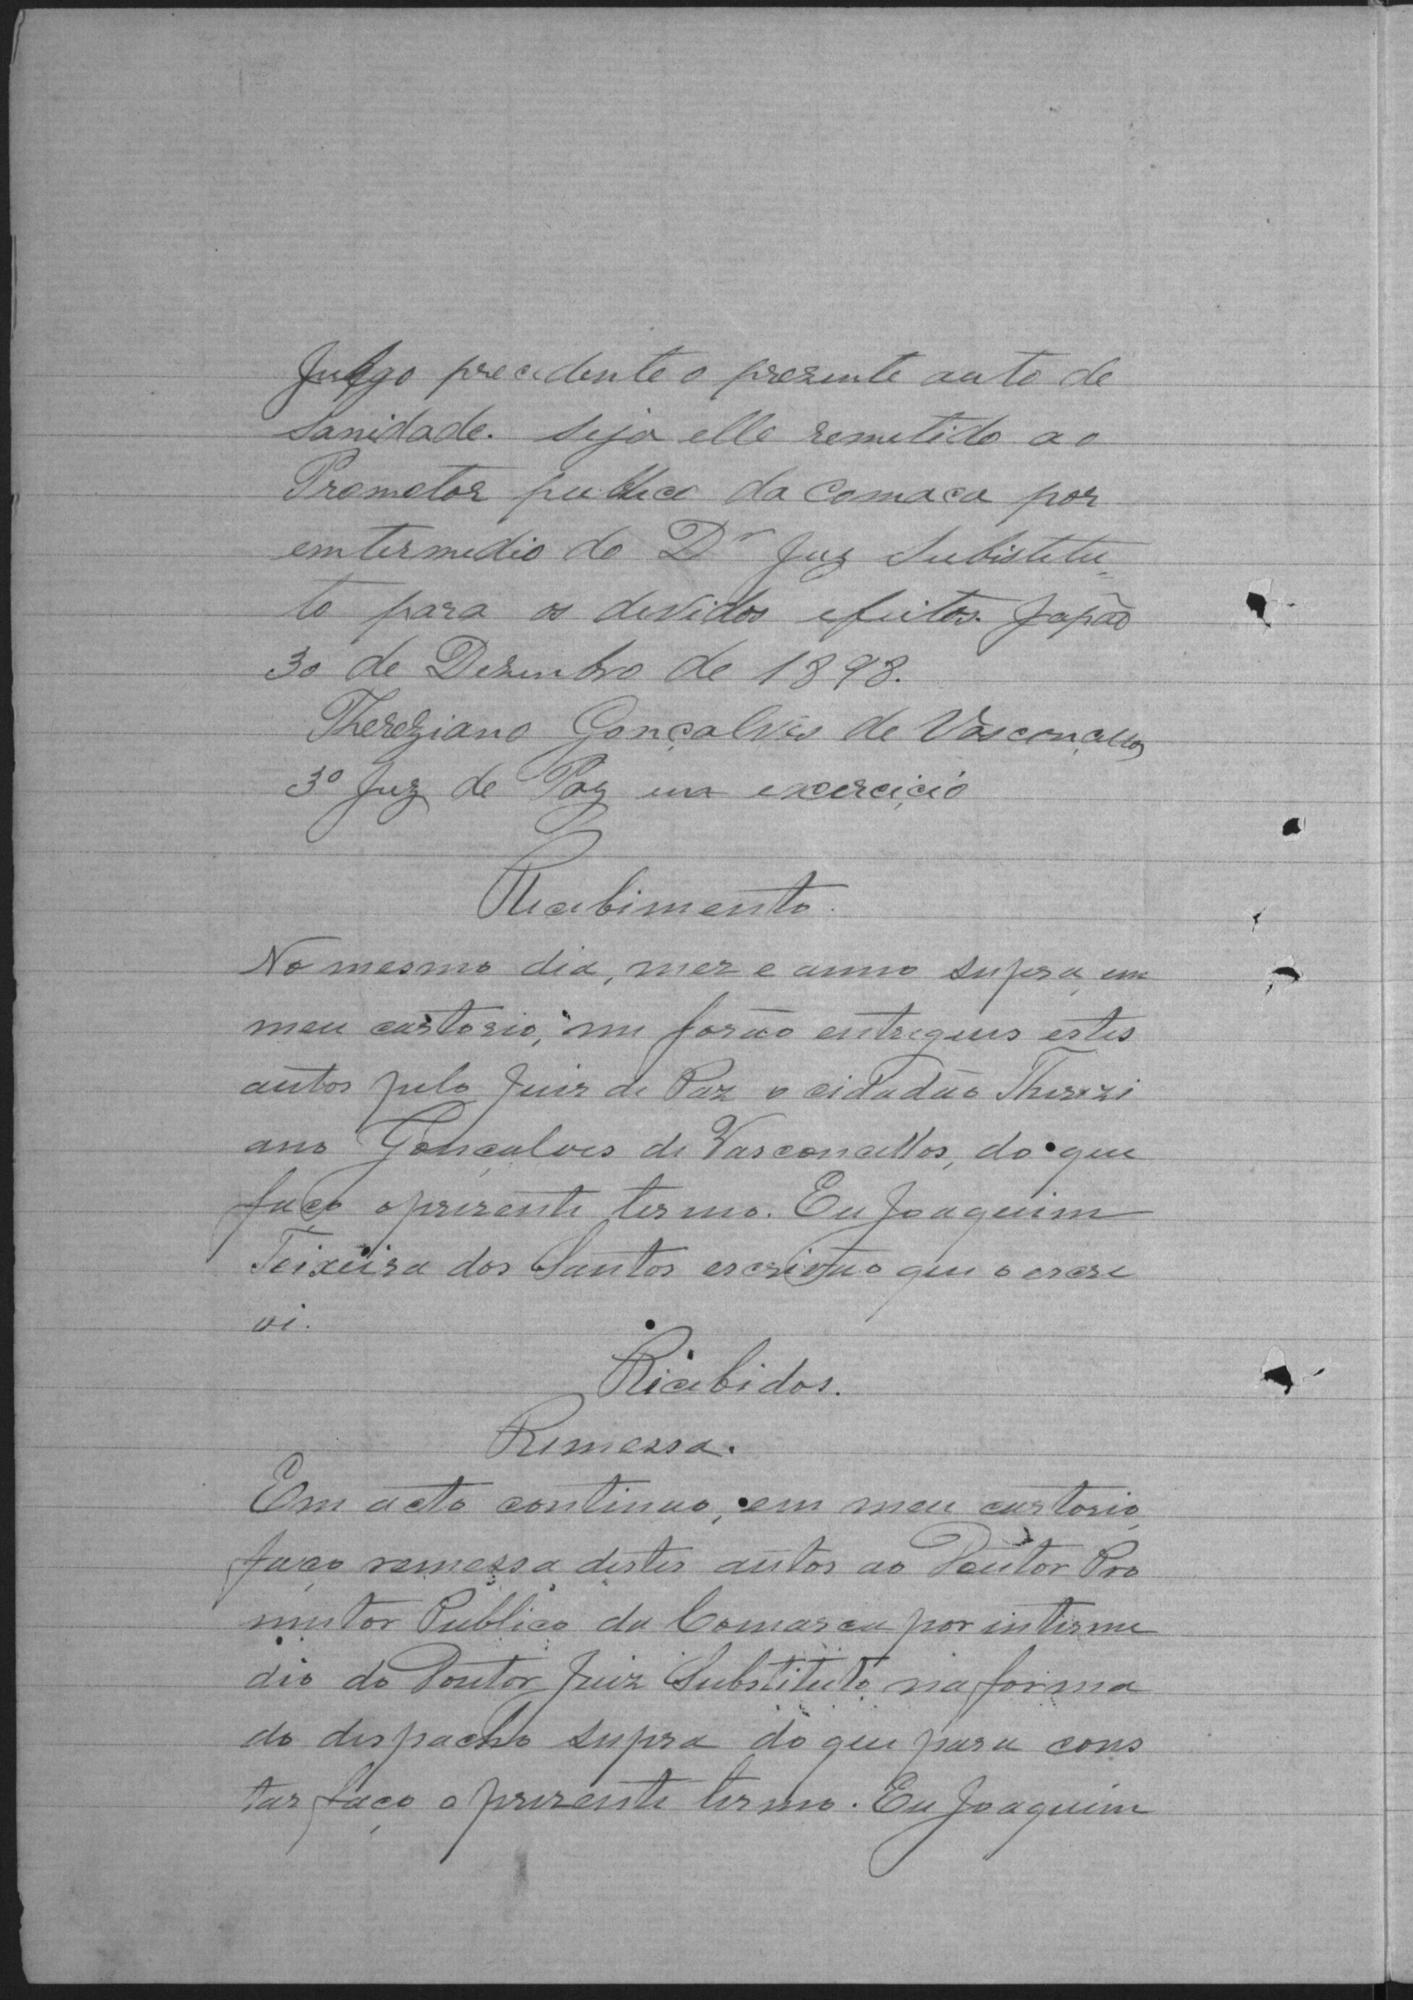 Julgo precedente o prezente auto de
sanidade. Seja elle remetido ao
Prometor publico da Comaca por
emtermedio do Dr Juz Subistetu-
to para os devidos efeitos. Japão
30 de Dezembro de 1898.
Thereziano Gonçalves de Vasconcellos
3º Juz de Paz em exercicio
Recebimento.
No mesmo dia, mez e anno supra, em
meu cartorio, me forão entregues estes
autos pelo Juiz de Paz o cidadão Therezi
ano Gonçalves de Vasconcellos, do que
faço o prezente termo. Eu Joaquim
Teixeira dos Santos escrivão que o escre
vi.
Recebidos.
Remessa.
Em acto continuo, em meu cartorio,
faço remessa destes autos ao Doutor Pro
mutor Publico da Comarca por interme
dio do Doutor Juiz Substituto, na forma
do despacho supra do que para cons
tar faço o prezente termo. Eu Joaquim